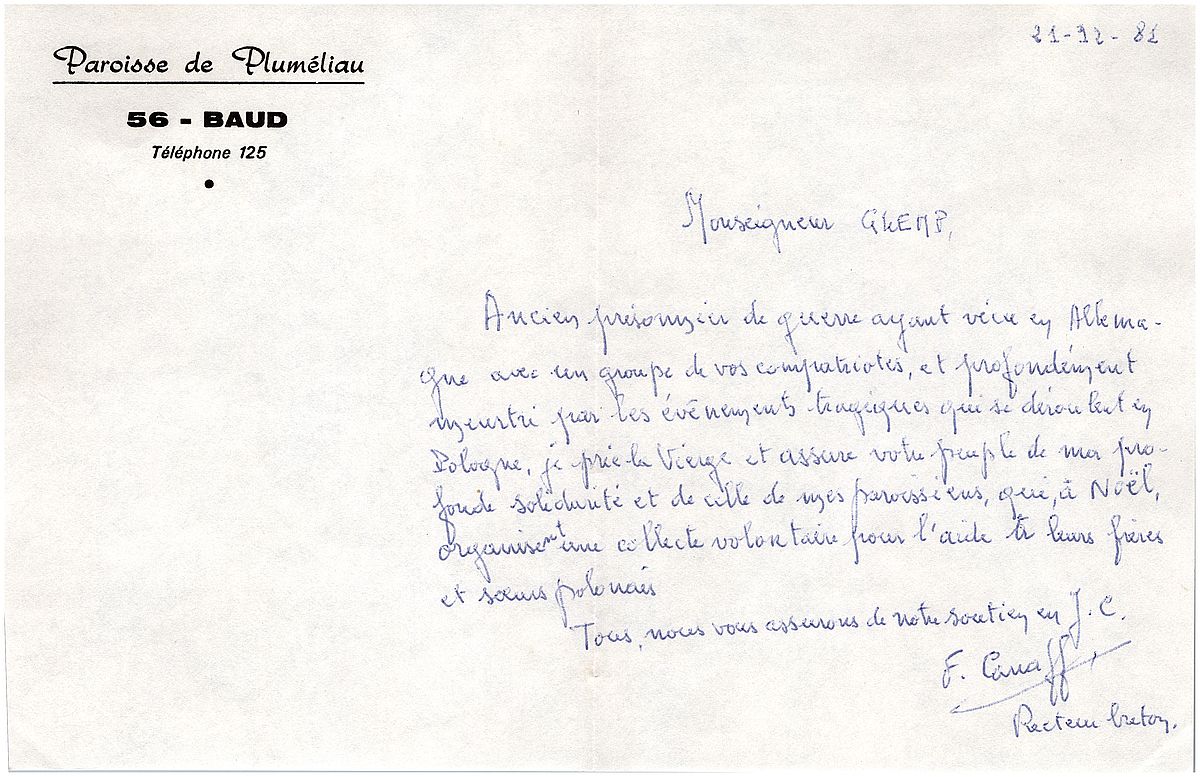 21-12-81
Paroisse de Pluméliau
56 - BAUD
Téléphone 125
Monseigneur GLEMP,
Ancien prisonnier de guerre ayant vécu en Allema-
gne avec un groupe de vos compatriotes, et profondément
meurtri par les événements tragiques qui se déroulent en
Pologne, je prie la Vierge et assure votre peuple de ma pro-
fonde solidarité et de celle de mes paroissiens, qui, à Noël,
organisent une collecte volontaire pour l'aide à leurs frères
et sœurs polonais
Tous, nous vous assurons de notre soutien en J. C.
F. Canaff
Recteur breton.